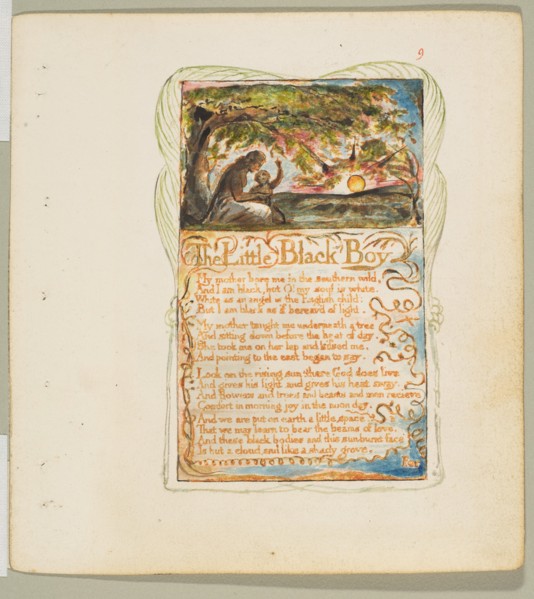 9
The Little Black Boy
My mother bore me in the southern wild,
And I am black, but O! my soul is white.
White as an angel is the English child:
But I am black as if bereav'd of light.
My mother taught me underneath a tree
And sitting down before the heat of day.
She took me on her lap and kissed me,
And pointing to the east began to say.
Look on the rising sun: there God does live
And gives his light, and gives his heat away.
And flowers and trees and beasts and men recieve
Comfort in morning joy in the noon day.
And we are put on earth a little space,
That we may learn to bear the beams of love,
And these black bodies and this sun-burnt face
Is but a cloud, and like a shady grove.
For